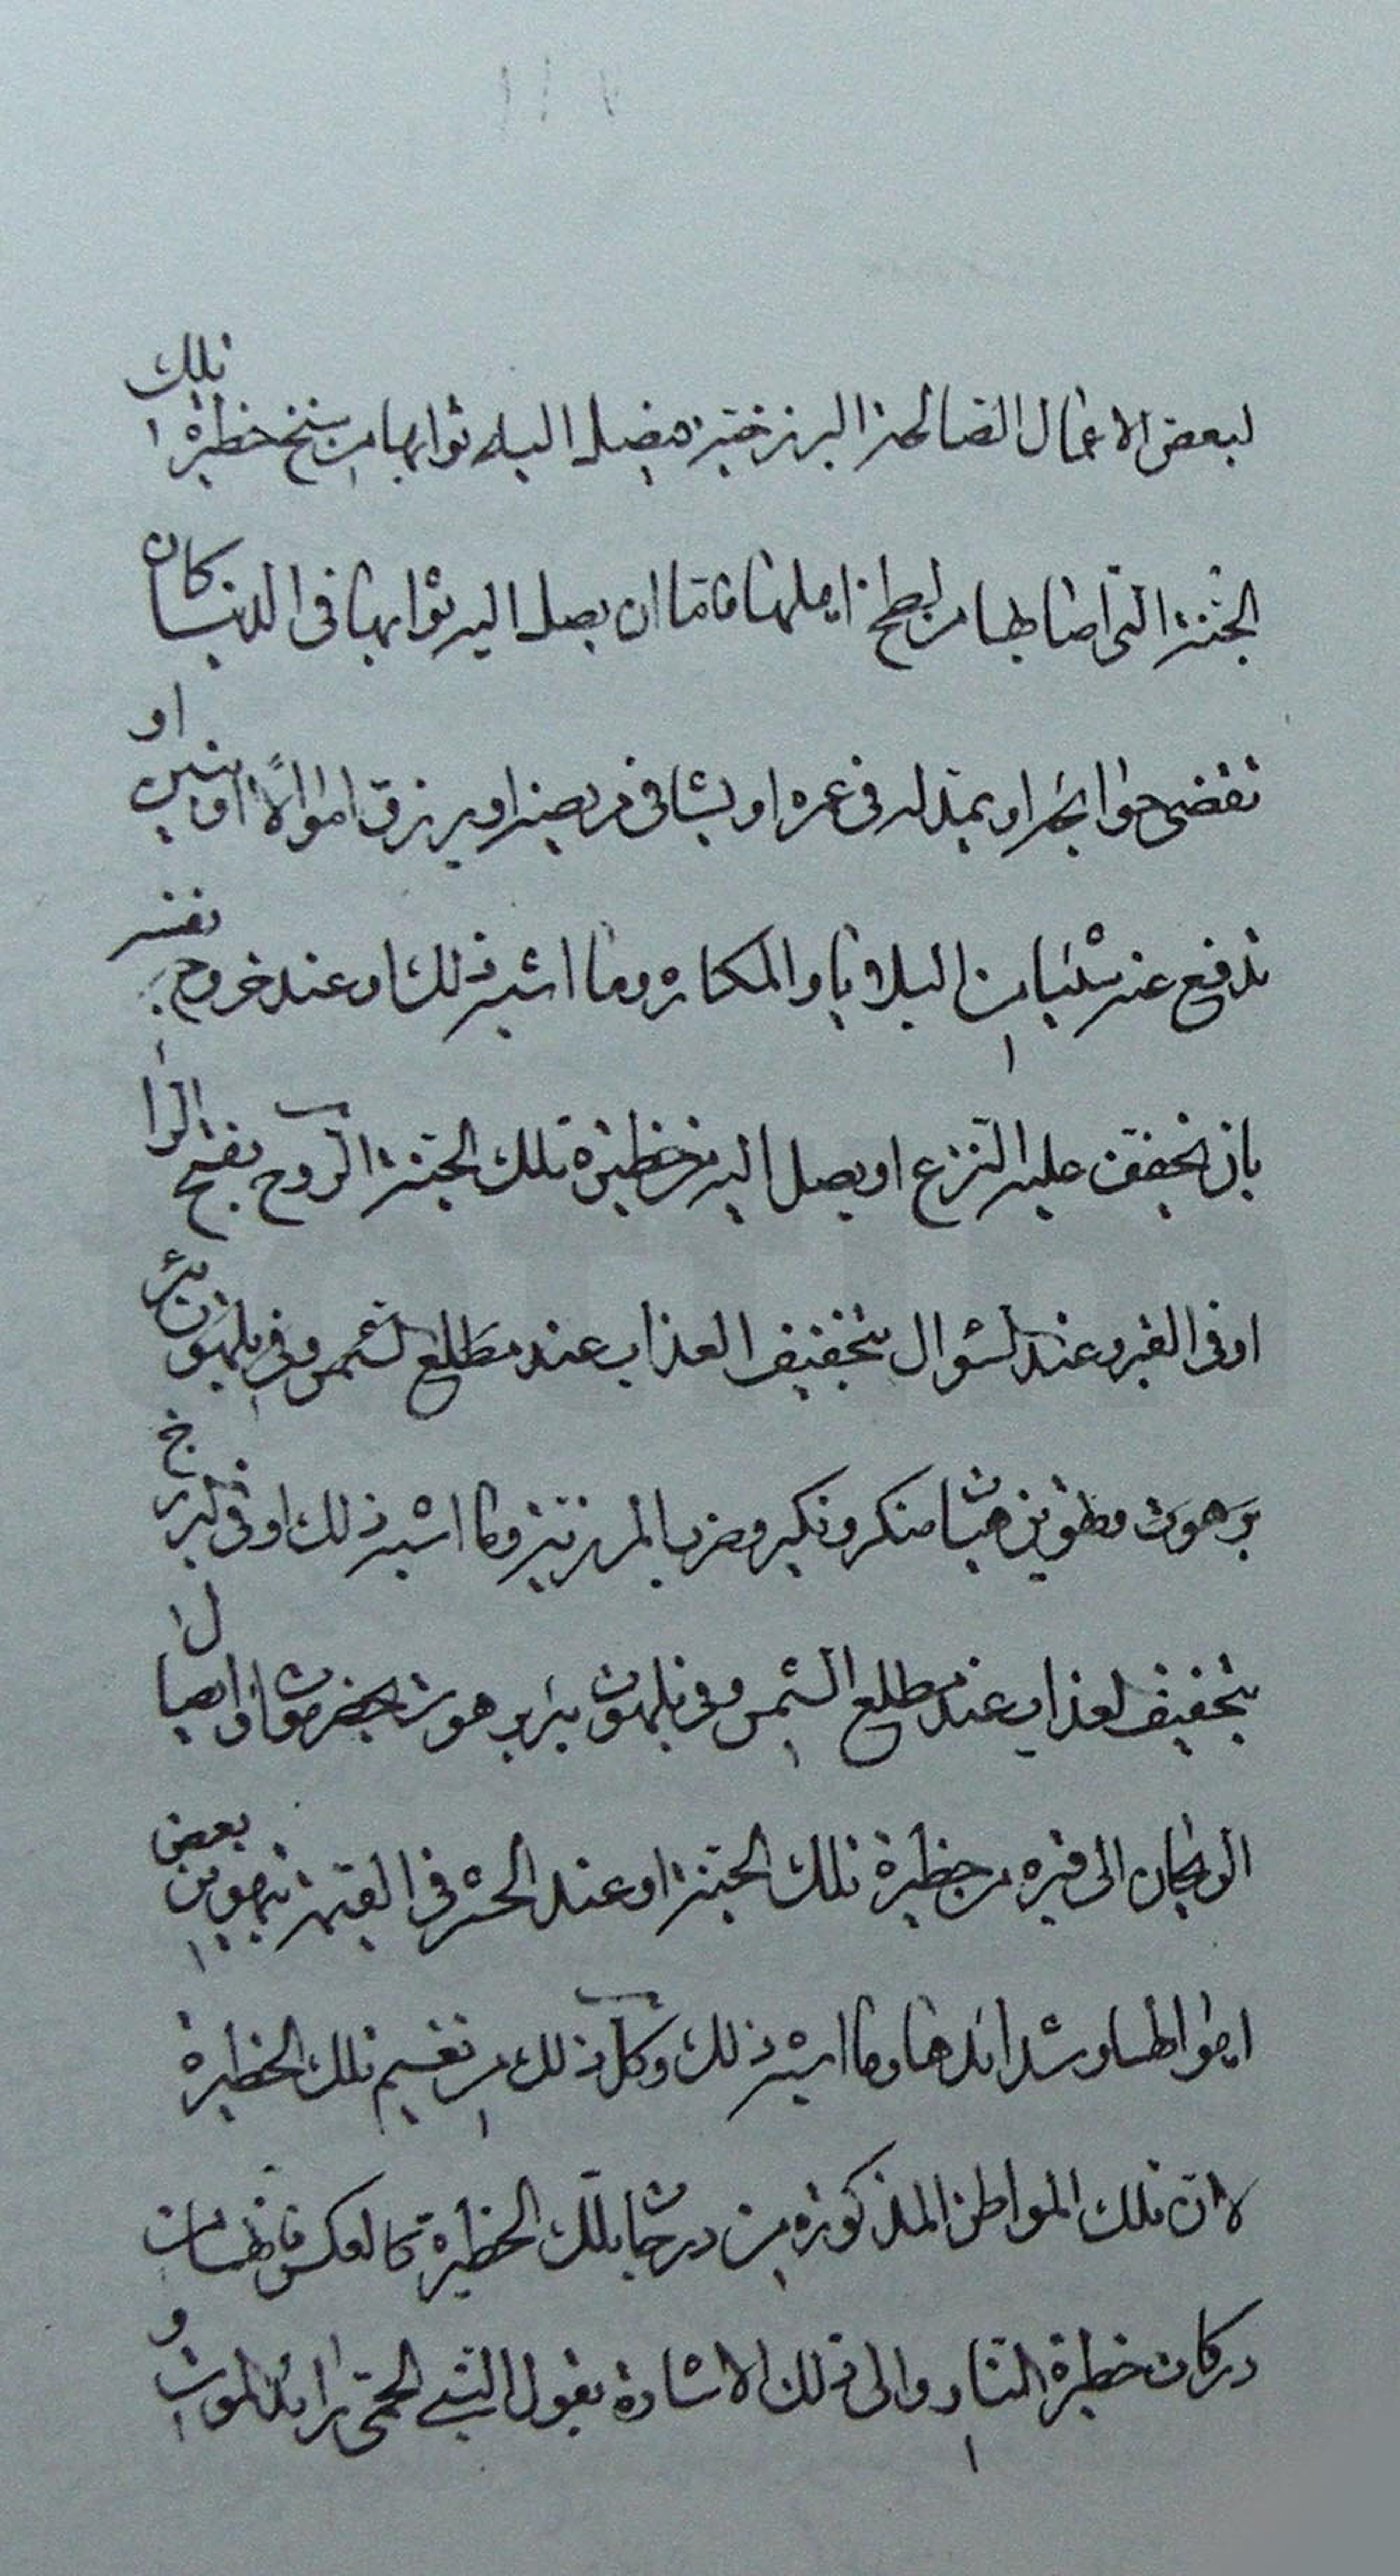 لبعض الاعمال الصالحة البرزخية فيصل اليه ثوابها من سنخ حظيرة تلك
الجنة التى اصابها من لطخ اهلها فاما ان يصل اليه ثوابها فى الدنيا كان
تقضى حوائجه او يمد له فى عمره او يشافى مريضه او يرزق اموالا او بنين او
تدفع عنه شيئا من البلايا والمكاره وما اشبه ذلك او عند خروج نفسه
بان يخفف عليه النزع او يصل اليه من حظيرة تلك الجنة الروح بفتح الراء
او فى القبر وعند السؤال بتخفيف العذاب عند مطلع الشمس وفى بلهوت بئر
برهوت وتهوين هيات منكر ونكير وضرب المرزبة وما اشبه ذلك او فى البرزخ
بتخفيف العذاب عند مطلع الشمس وفى بلهوت بئر برهوت بحضرموت او ايصال
الريحان الى قبره من حظيرة تلك الجنة او عند الحشر فى القيمة بتهوين بعض
اهوالها وشدائدها وما اشبه ذلك وكل ذلك من نعيم تلك الحظيرة
لان تلك المواطن المذكورة من درجات تلك الحظيرة كالعكس فانها من
دركات حظيرة النار والى ذلك الاشارة بقول النبى الحمى رائد الموت و